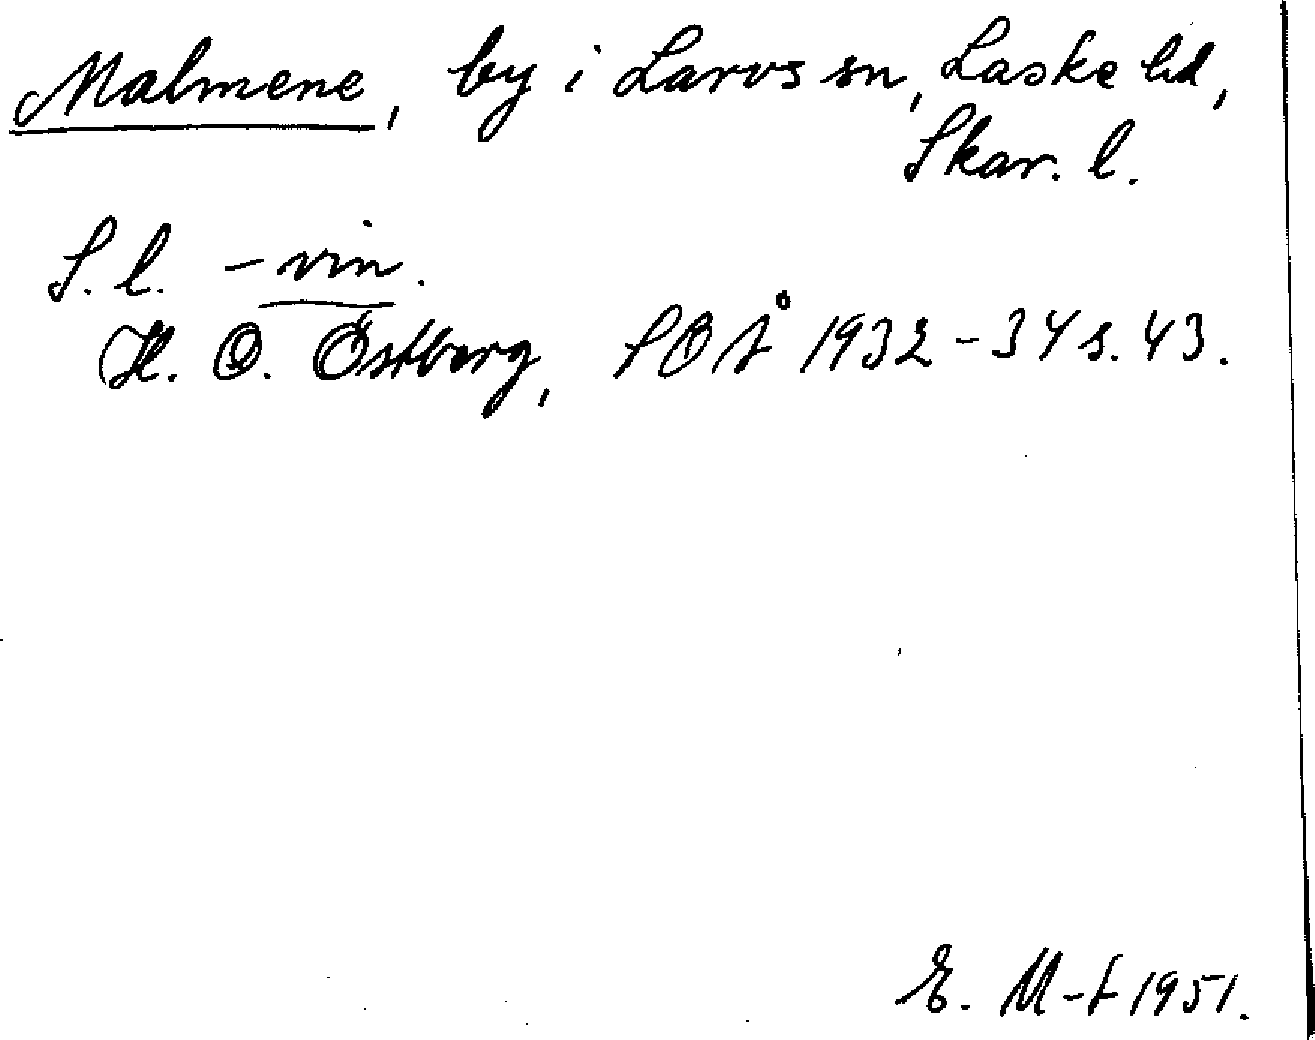 Malmene, by i Larvs sn, Laske hd,
Skar. l.
S. l. - vin.
H. O. Östberg, SOÅ 1932-34 s. 43.
E. M-t 1951.